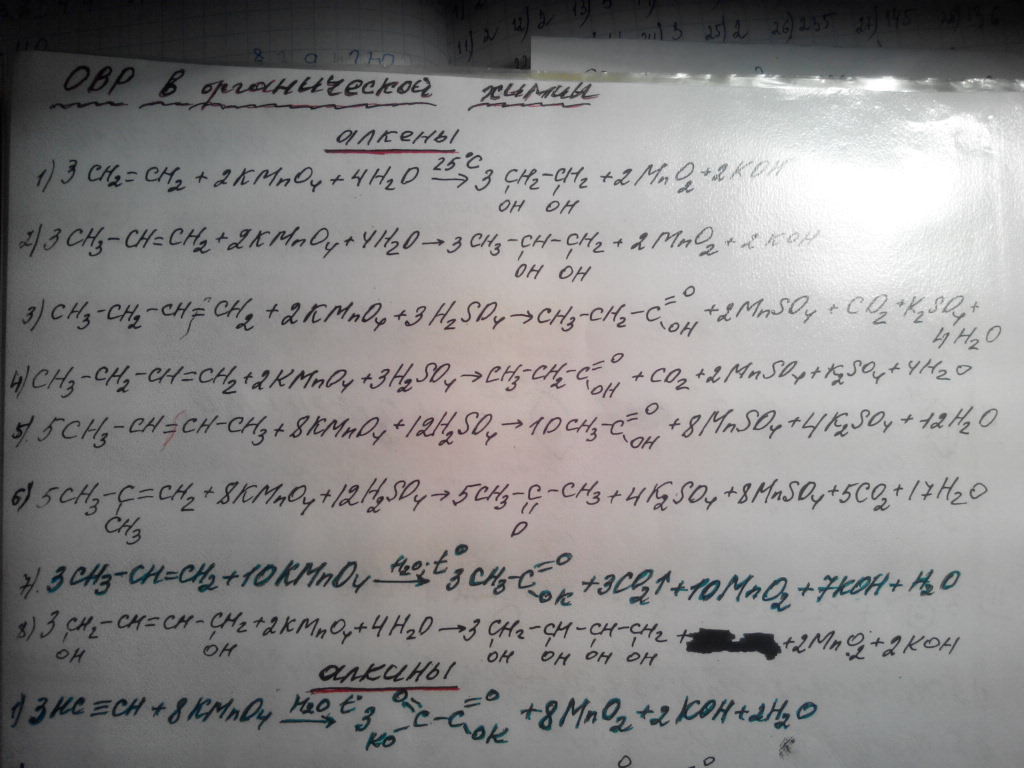 11) 2 12) 2 13) 5
24) 3 25) 2 26) 235 27) 145 28) 136
ОВР в органической химии
алкены
1) 3 CH2=CH2 + 2KMnO4 + 4H2O 25°C → 3 CH2-CH2 + 2MnO2 + 2KOH
OH OH
2) 3CH3-CH=CH2 + 2KMnO4 + 4H2O → 3CH3-CH-CH2 + 2MnO2 + 2KOH
OH OH
3) CH3-CH2-CH=CH2 + 2KMnO4 + 3H2SO4 → CH3-CH2-C=O OH + 2MnSO4 + CO2 + K2SO4 +
4H2O
4) CH3-CH2-CH=CH2 + 2KMnO4 + 3H2SO4 → CH3-CH2-C=O OH + CO2 + 2MnSO4 + K2SO4 + 4H2O
5) 5CH3-CH=CH-CH3 + 8KMnO4 + 12H2SO4 → 10CH3-C=O OH + 8MnSO4 + 4K2SO4 + 12H2O
6) 5CH3-C=CH2 + 8KMnO4 + 12H2SO4 → 5CH3-C-CH3 + 4K2SO4 + 8MnSO4 + 5CO2 + 17H2O
CH3 O
7) 3CH3-CH=CH2 + 10KMnO4 H2O, t° → 3CH3-C=O OK + 3CO2↑ + 10MnO2 + 7KOH + H2O
8) 3 CH2-CH=CH-CH2 + 2KMnO4 + 4H2O → 3 CH2-CH-CH-CH2 + + 2MnO2 + 2KOH
OH OH OH OH OH OH
алкины
1) 3HC≡CH + 8KMnO4 H2O, t° → 3 O=C-C=O KO OK + 8MnO2 + 2KOH + 2H2O